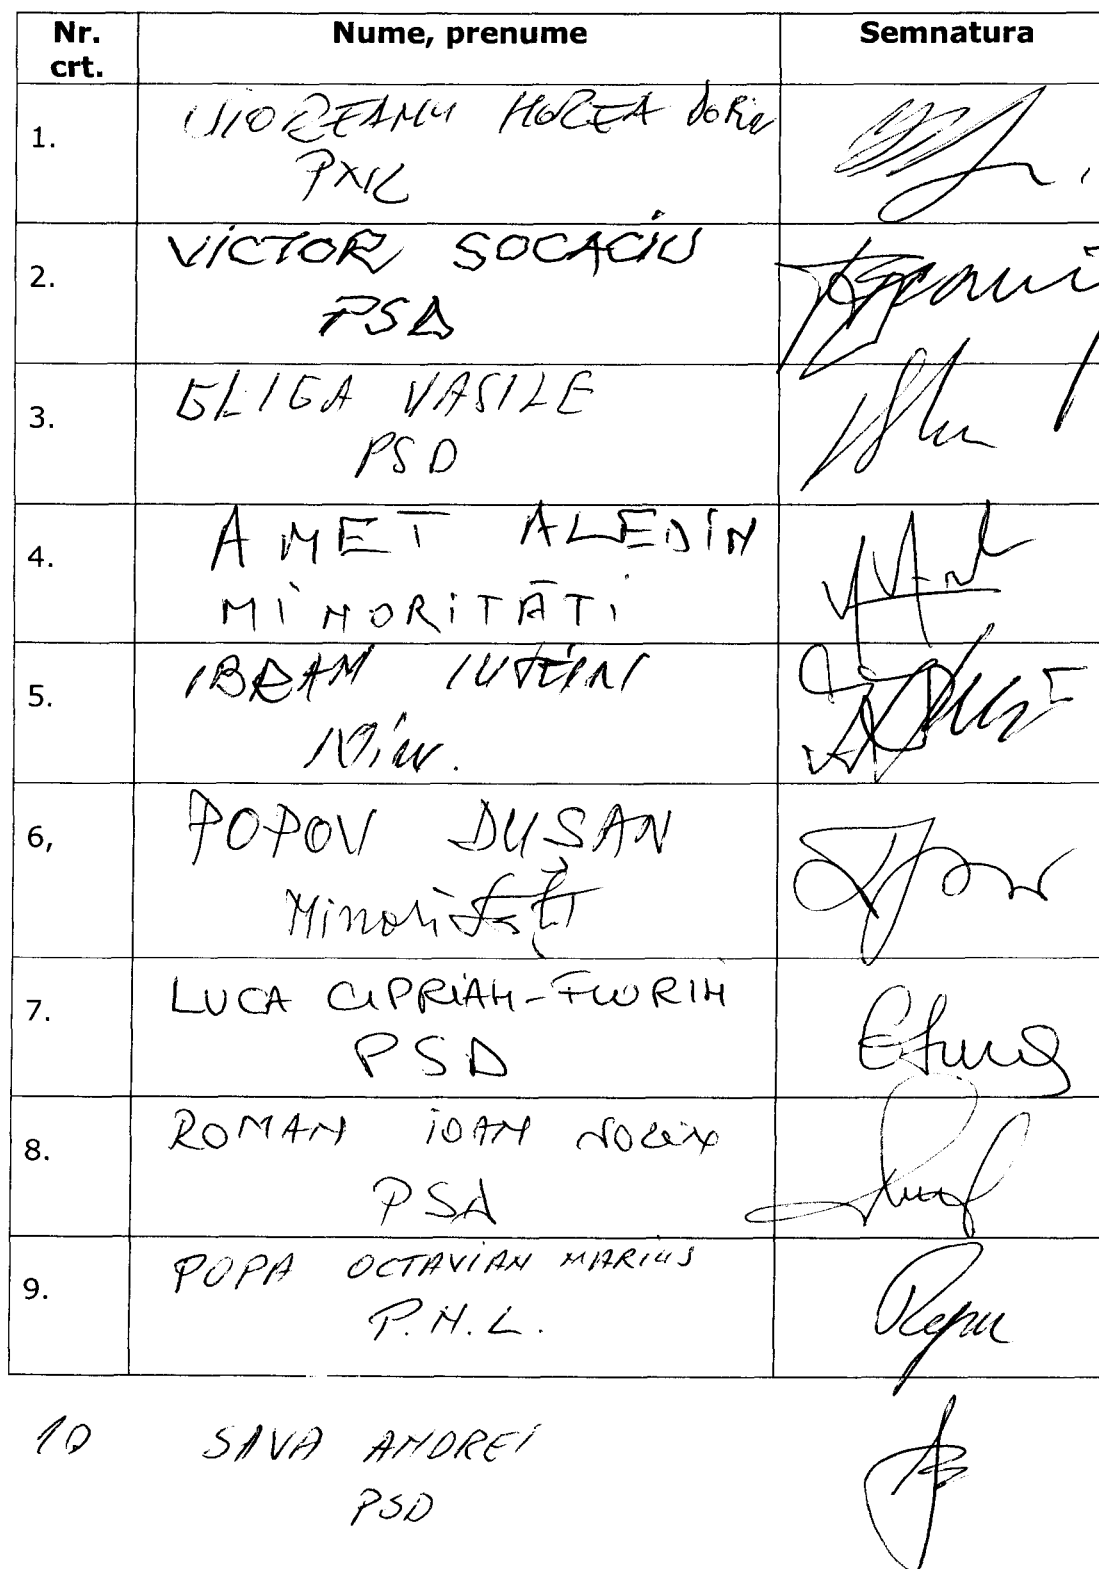 Nr. crt. Nume, prenume Semnatura
1. UIOREANU HOREA DORIN
PNL
2. VICTOR SOCACIU
PSD
3. GLIGA VASILE
PSD
4. AMET ALEDIN
MINORITĂTI
5. IBRAM IUSEIN
Min.
6, POPOV DUȘAN
Minorități
7. LUCA CIPRIAN-FLORIN
PSD
8. ROMAN IOAN
PSD
9. POPA OCTAVIAN MARIUS
P.N.L.
10 SAVA ANDREI
PSD